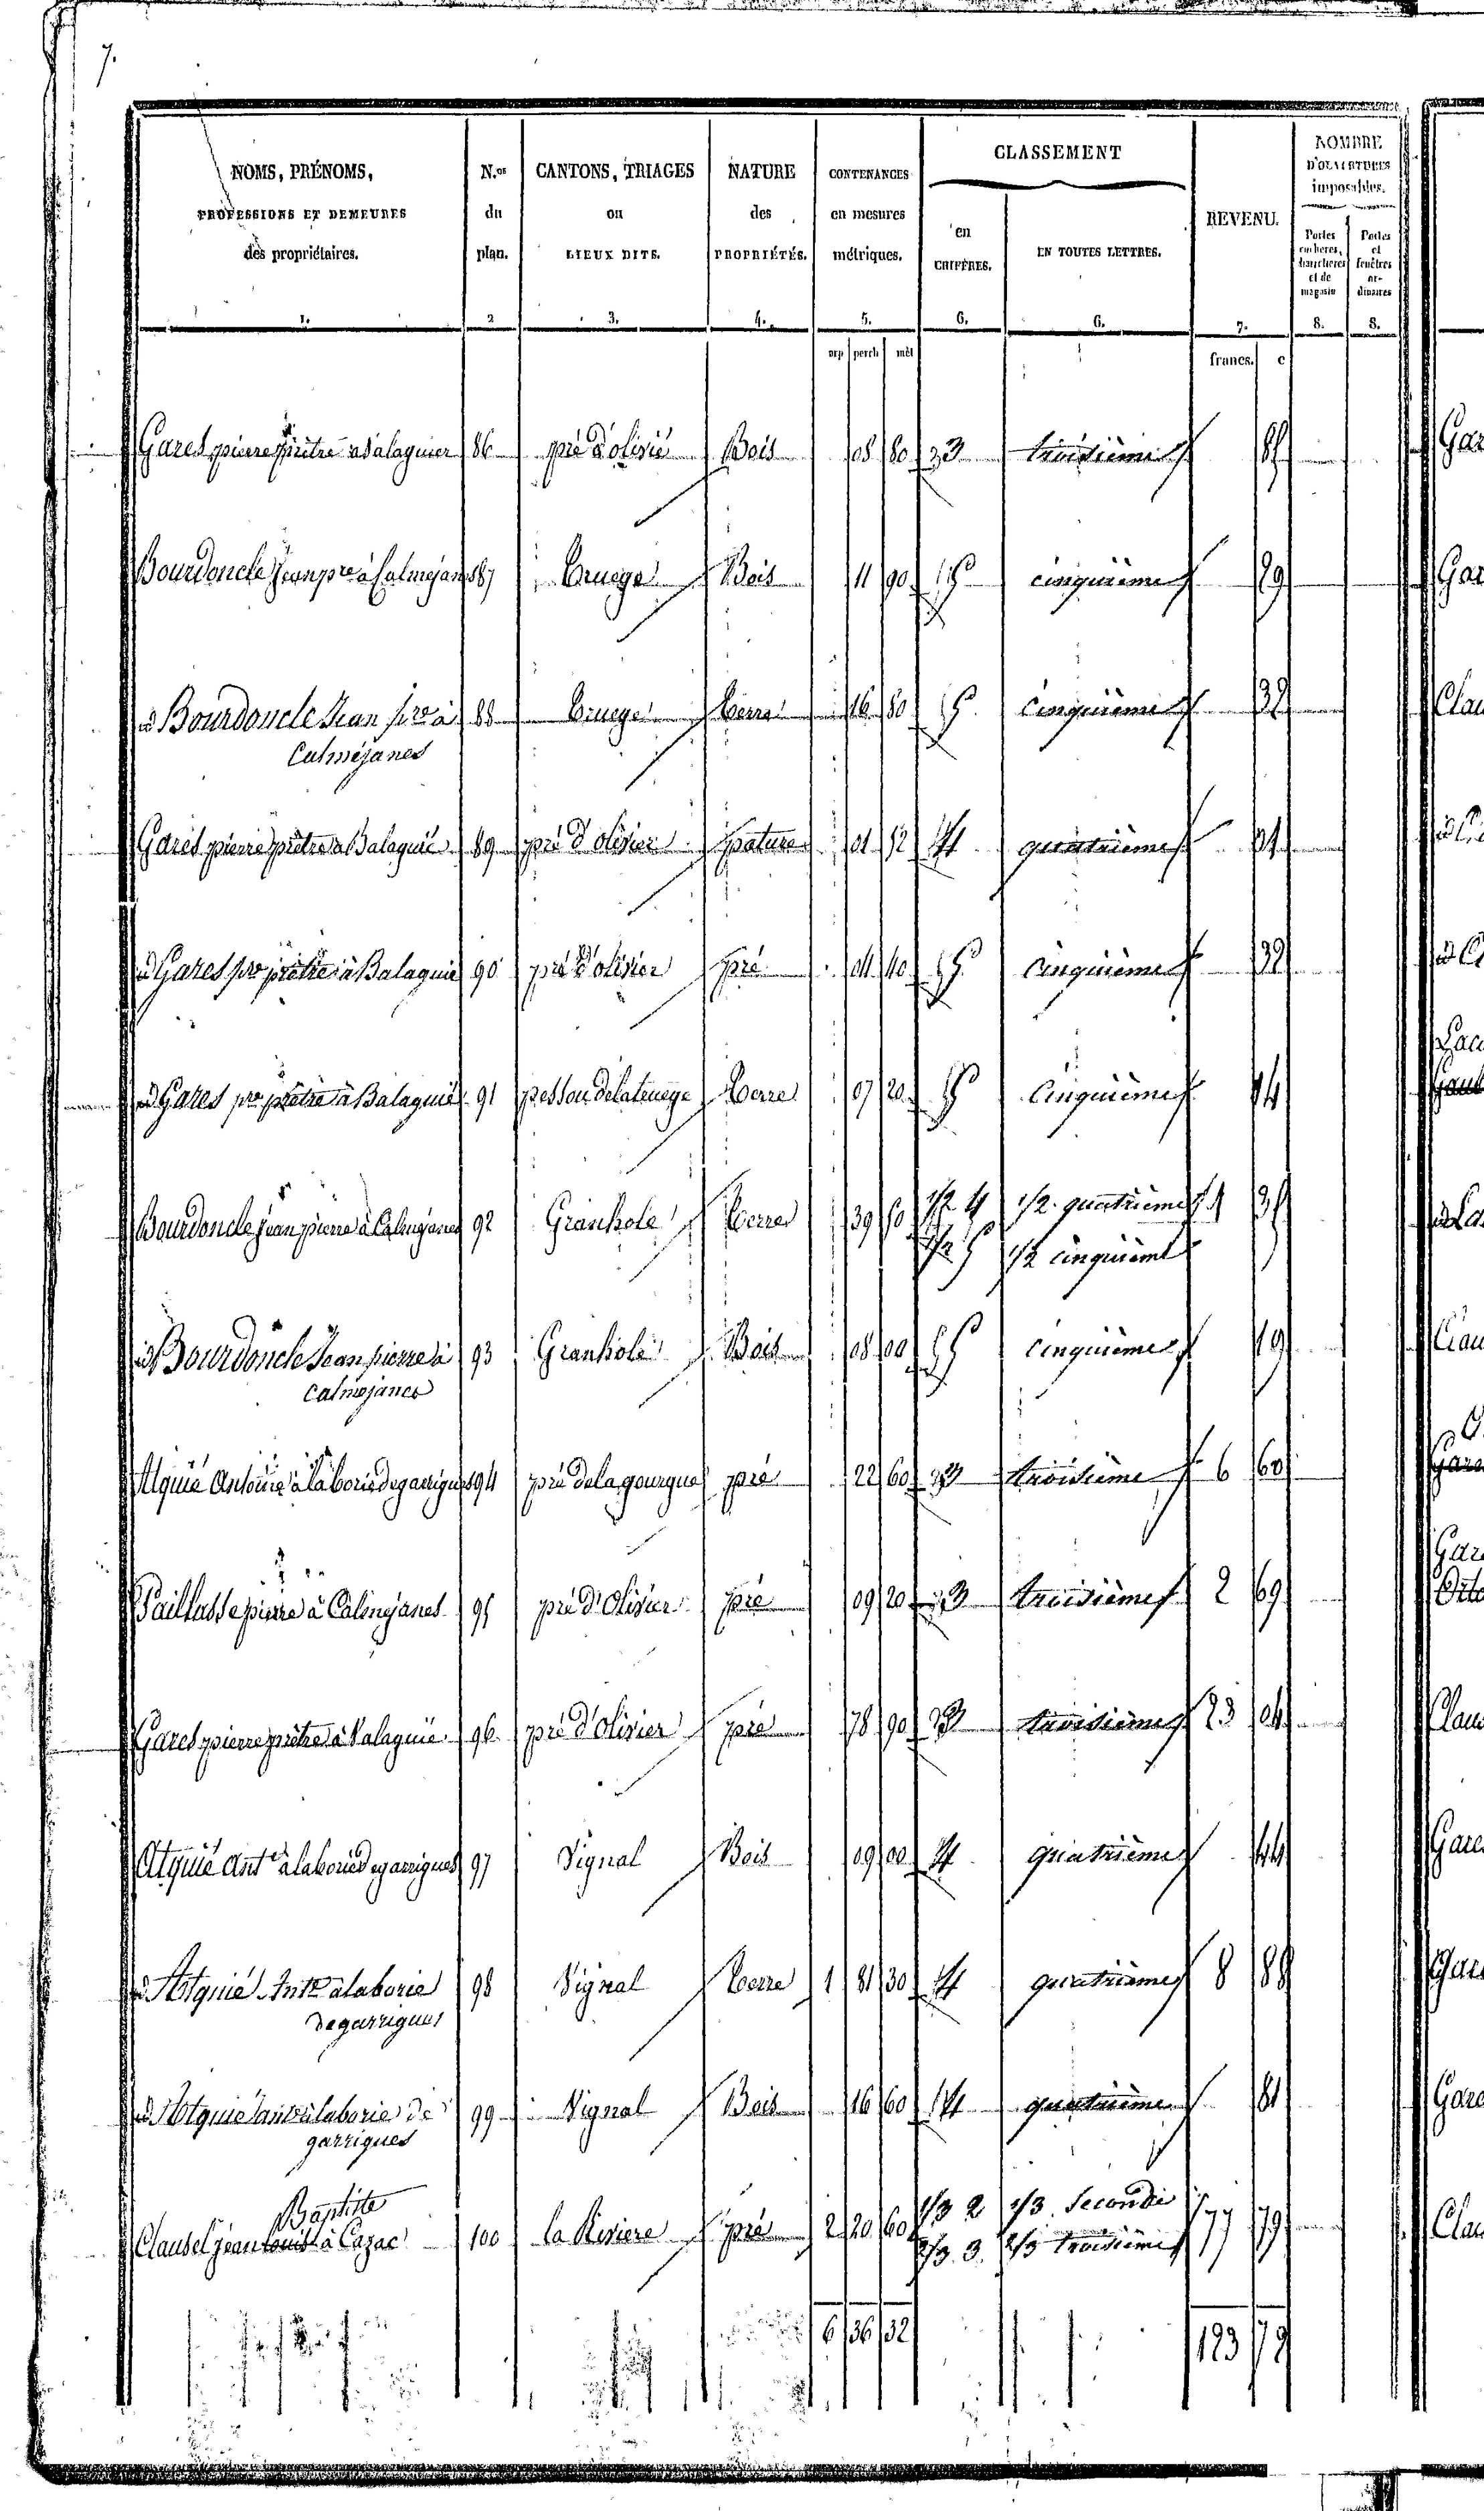 7.
NOMS, PRÉNOMS, PROFESSIONS ET DEMEURES des propriétaires. N.os du plan. CANTONS, TRIAGES ou LIEUX DITS. NATURE des PROPRIÉTÉS. CONTENANCES en mesures métriques. CLASSEMENT en CHIFFRES. EN TOUTES LETTRES. REVENU. NOMBRE D'OUVERTURES imposables. Portes cochères, charretières et de magasin Portes et fenêtres ordinaires
1. 2 3. 4. 5. 6. 6. 7. 8. 8.
arp perch mèt francs. c
Gares pierre prêtre à Balaguier 86 pré d'olivié Bois 08 80 3 troisième
Bourdoncle Jean pre à Calmejanes 87 Cruege Bois 11 90 5 cinquième 29
id Bourdoncle Jean pre à 88 Cruege terre 16 80 5 cinquième 32
Calmejanes
Gares pierre prêtre à Balaguié 89 pré d'olivier pature 01 12 4 quatrième 01
id Gares pre prêtre à Balaguié 90 pré d'olivier pré 04 40 5 cinquième 32
id Gares pre prêtre à Balaguié 91 terre 07 20 5 cinquième 14
Bourdoncle Jean pierre à Calmejanes 92 Granhole terre 39 1/2 4 1/2 quatrième
1/2 5 1/2 cinquième
id Bourdoncle Jean pierre à 93 Granhole Bois 08 00 5 cinquième 19
Calmejanes
Alquié Antoine à la borie de garrigues 94 pré de la gourgue pré 22 60 3 troisième 6 60
Paillasse pierre à Calmejanes 95 pré d'Olivier pré 09 20 3 troisième 2 69
Gares pierre prêtre à Balaguié 96 pré d'Olivier pré 78 90 3 troisième 23 04
Alquié Ant.e à la borie de garrigues 97 Vignal Bois 09 00 4 quatrième 44
id Alquié Ant.e à la borie 98 Vignal terre 1 81 30 4 quatrième 8 88
de garrigues
id Alquié ant.e à la borie de 99 Vignal Bois 16 60 4 quatrième 81
garrigues
Baptiste 1/3 2 1/3 Seconde
Clausel jean louis à Cazac 100 la Riviere pré 2 20 60 2/3 3. 2/3 troisième 77 79
6 36 32 123 79